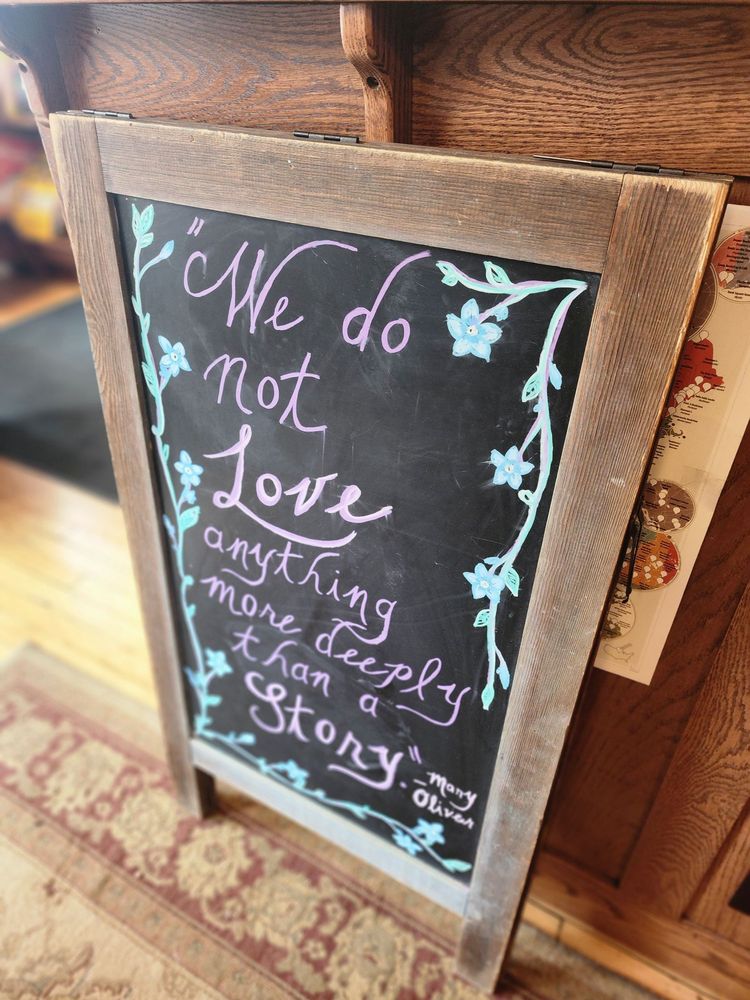 "We do
not
Love
anything
more deeply
than a
Story."
-Mary
Oliver